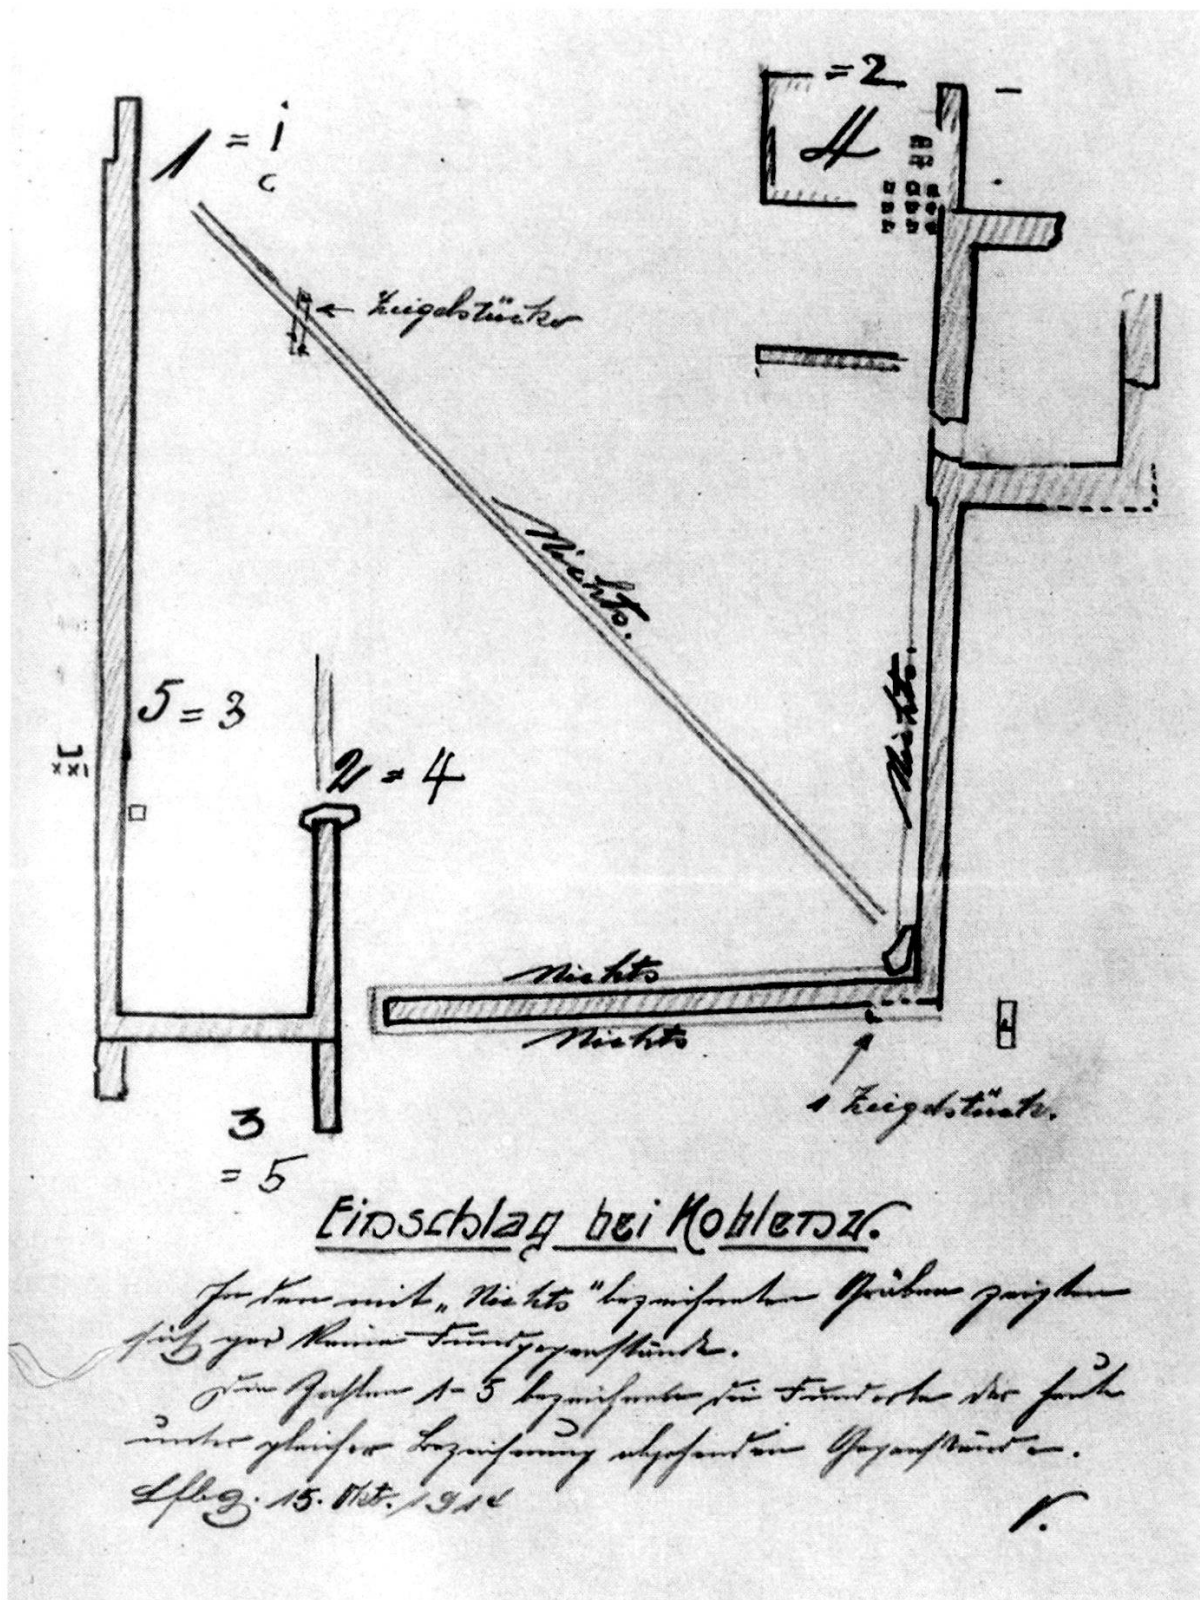 = 2
4
1 = i
c
← Ziegelstücke
Nichts.
Nichts.
5 = 3
2 = 4
Nichts
Nichts
1 Ziegelstück.
3
= 5
Einschlag bei Koblenz.
In den mit „Nichts" bezeichneten Gräben zeigten
sich gar keine Fundgegenstände.
Die Zahlen 1-5 bezeichnen die Fundorte der heute
unter gleicher Bezeichnung abgehenden Gegenstände.
Lfbg. 15. Okt. 1914
V.